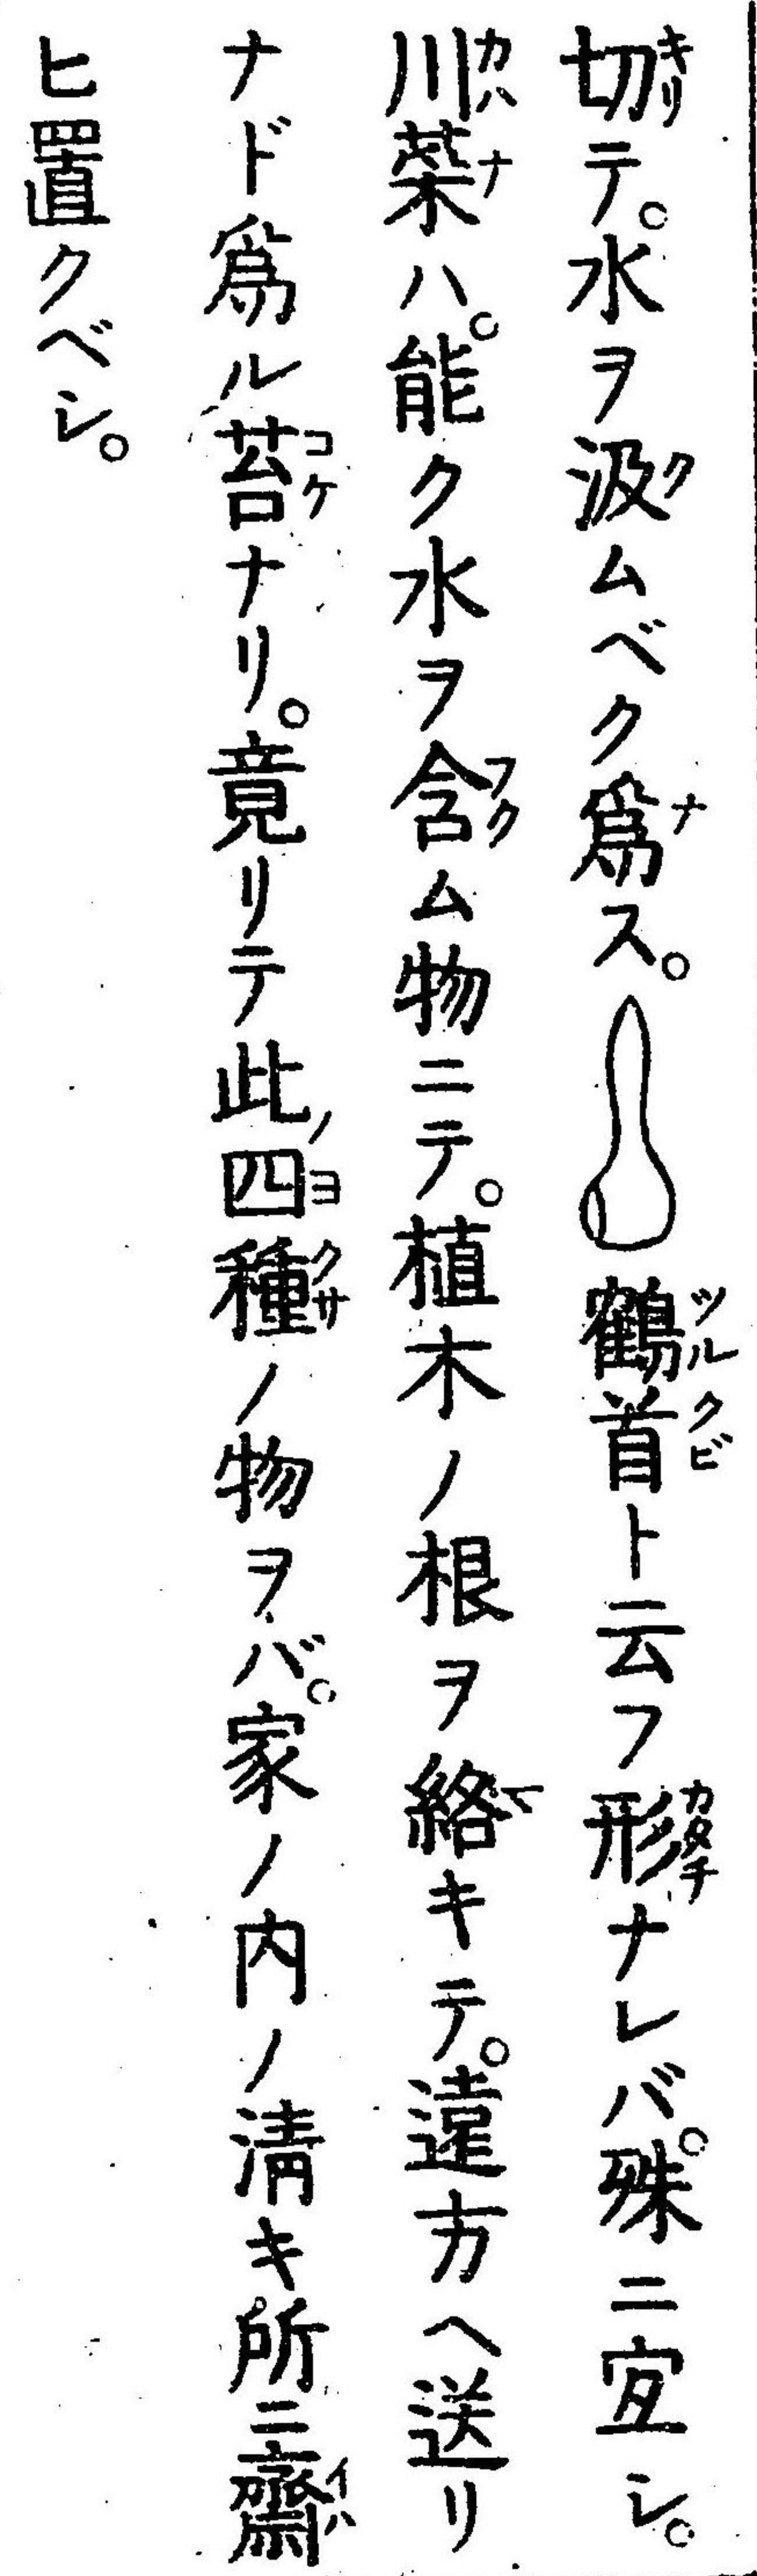 切テ。水ヲ汲ムベク爲ス。鶴首ト云フ形ナレバ。殊ニ宜シ。
川菜ハ。能ク水ヲ含ム物ニテ。植木ノ根ヲ絡キテ。遠方ヘ送リ
ナド爲ル苔ナリ。竟リテ此四種ノ物ヲバ。家ノ内ノ淸キ所ニ齋
ヒ置クベシ。